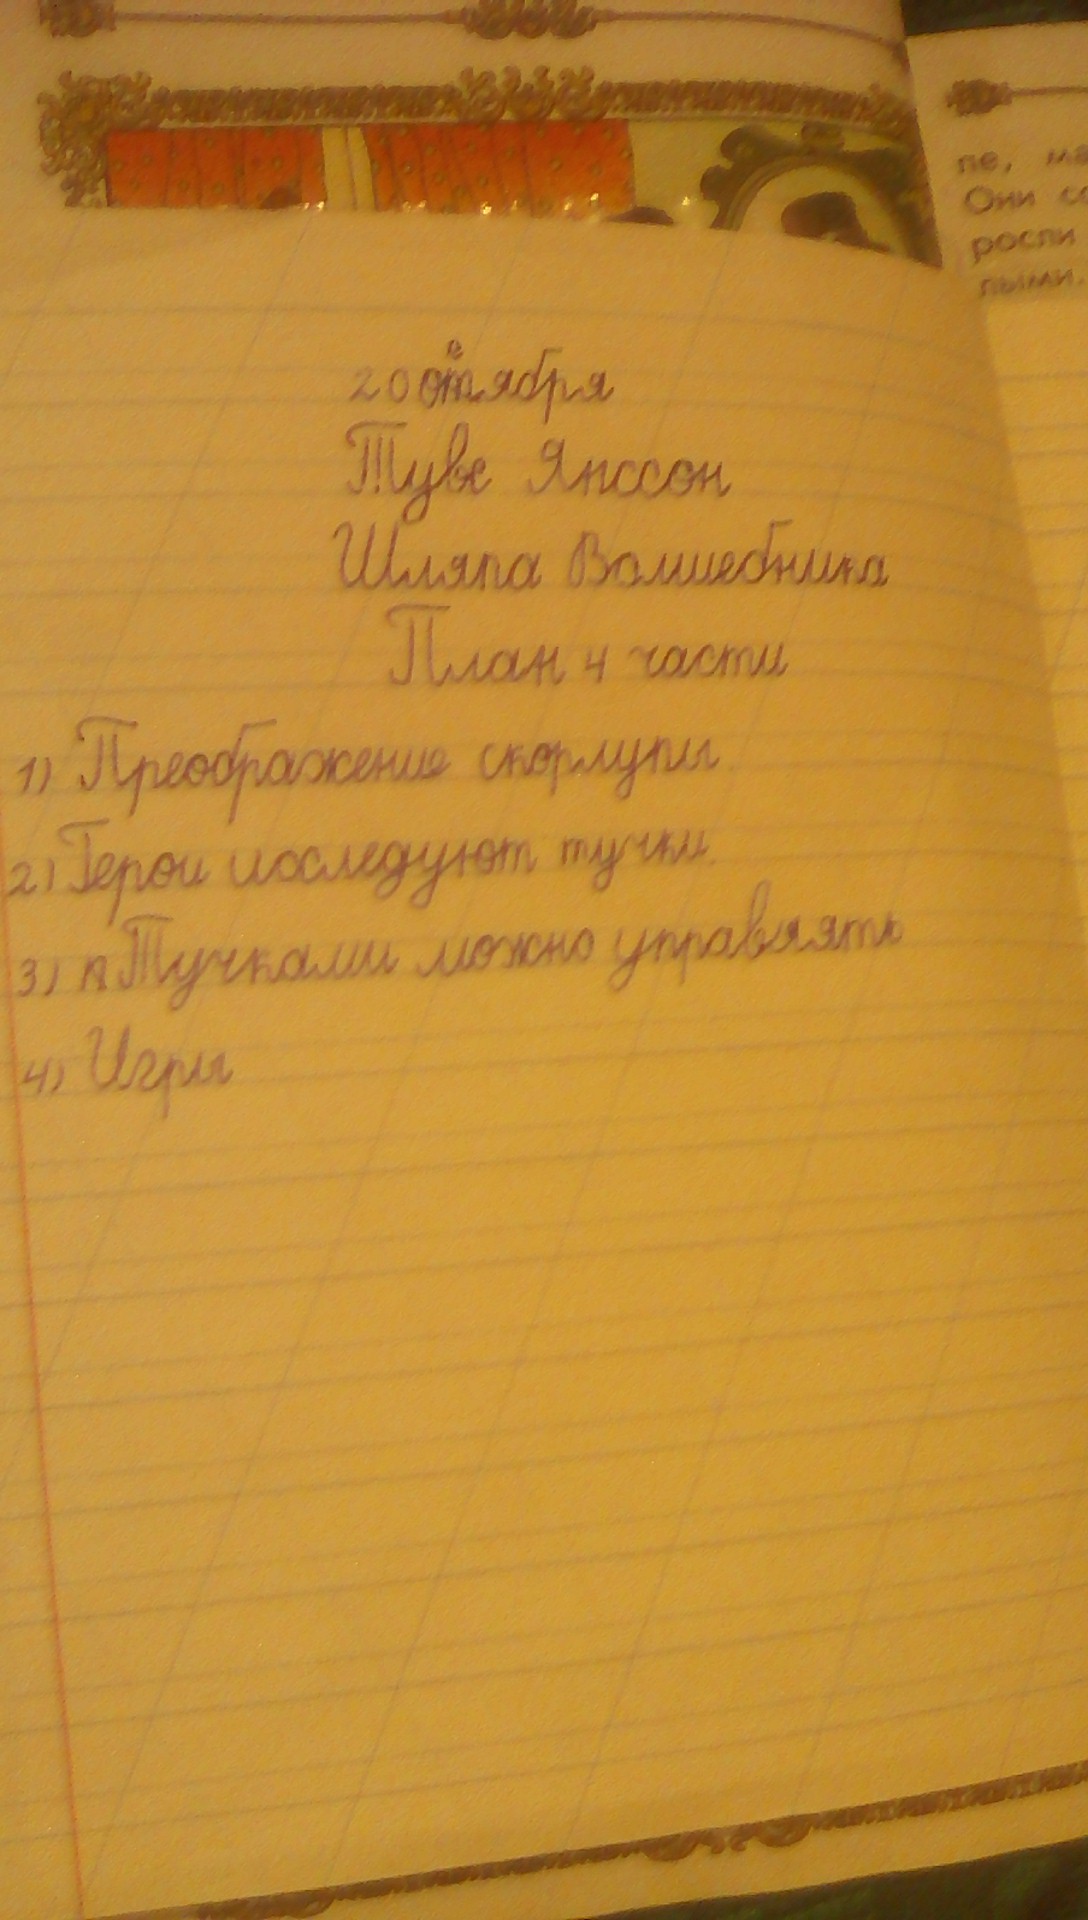 пе, ма
Они со
росли
лыми.
20 октября
Туве Янссон
Шляпа Волшебника
План 4 части
1) Преображение скорлупы
2) Герои исследуют тучки.
3) Тучками можно управлять
4) Игры